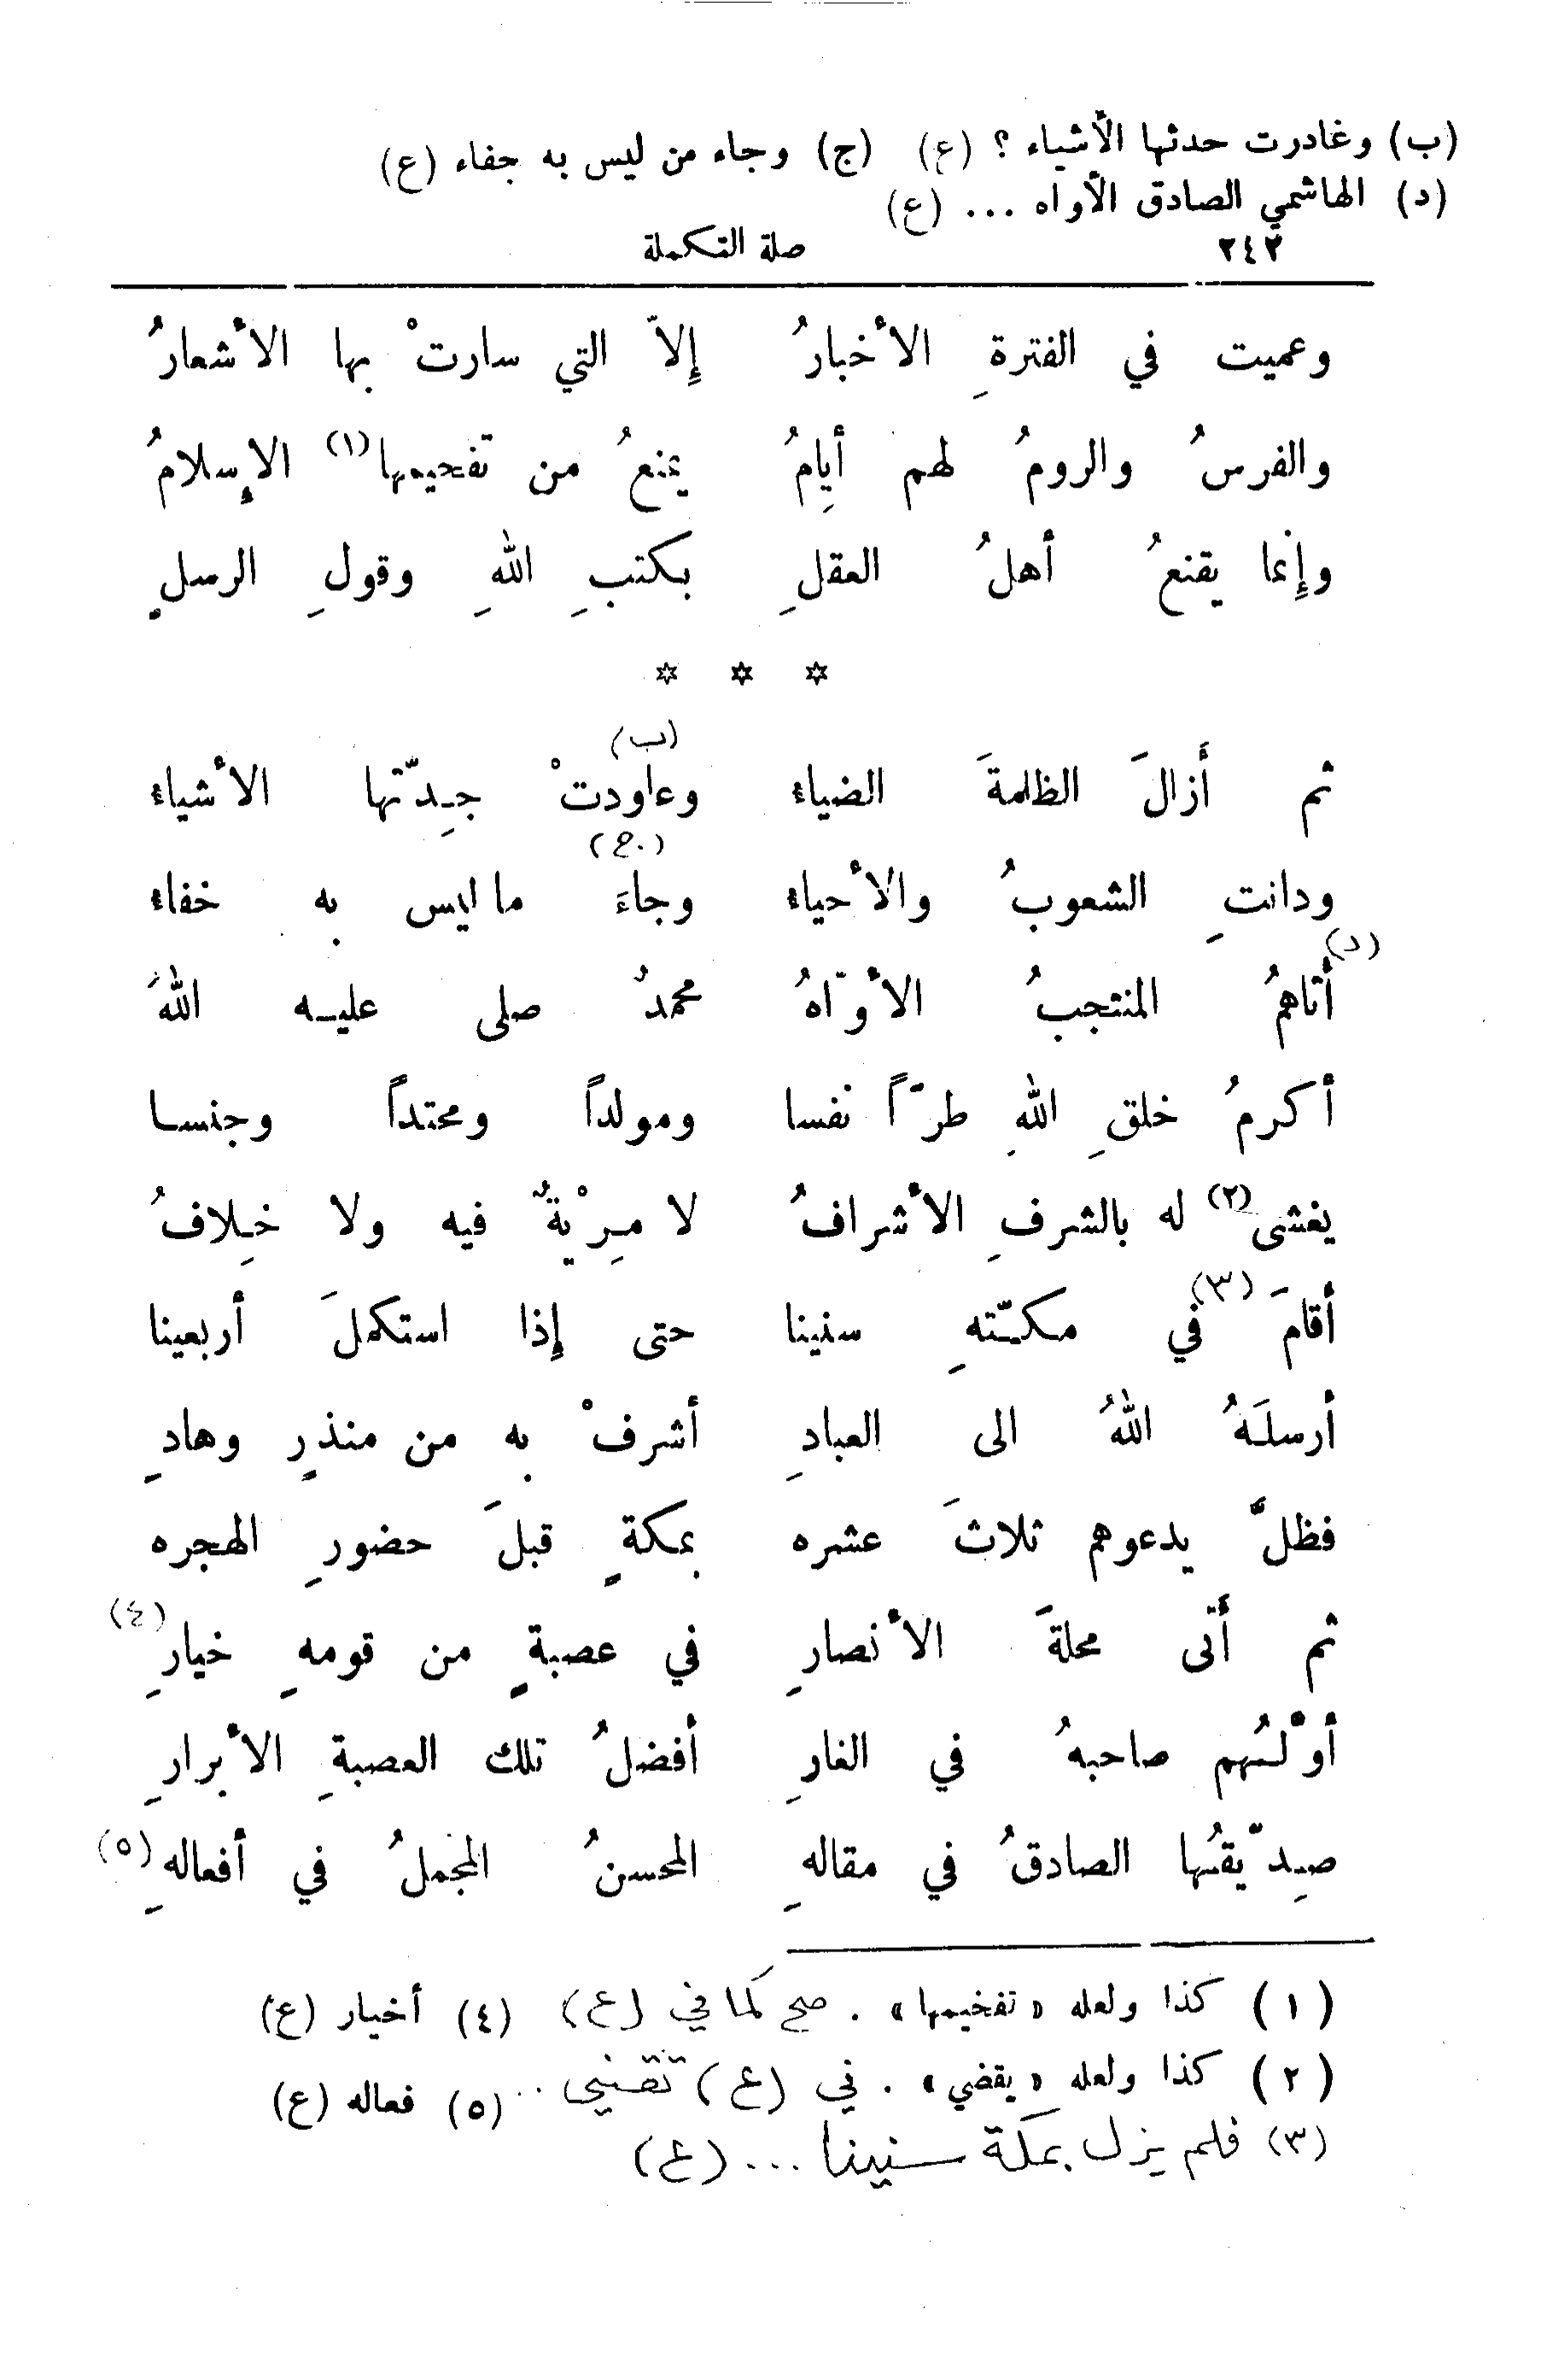 (ب) وغادرت حدثها الأشياء ؟ (ع) (ج) وجاء من ليس به جفاء (ع)
(د) الهاشمي الصادق الأواه ... (ع)
٢٤٢ صلة التكملة
وعميت في الفترةِ الأخبارُ إِلاّ التي سارتْ بها الأشعارُ
والفرسُ والرومُ لهم أيامُ يمنعُ من تفحيمها(١) الإسلامُ
وإِنما يقنعُ أهلُ العقلِ بكتبِ اللهِ وقولِ الرسلِ
* * *
ثم أَزالَ الظلمةَ الضياء وعاودتْ (ب) جِدّتها الأشياء
ودانتِ الشعوبُ والأحياء وجاءَ (ج) ما ليس به خفاء
(د) أتاهمُ المنتجبُ الأوّاهُ محمدٌ صلى عليه اللهُ
أكرمُ خلقِ اللهِ طرّاً نفسا ومولداً ومحتداً وجنسا
يغشى(٢) له بالشرفِ الأشرافُ لا مِرْيةٌ فيه ولا خِلافُ
أقامَ (٣) في مكّتهِ سنينا حتى إِذا استكملَ أربعينا
أرسلَهُ اللهُ الى العبادِ أشرفْ به من منذرٍ وهادِ
فظلَّ يدعوهم ثلاثَ عشره بمكةٍ قبلَ حضورِ الهجره
ثم أَتى محلةَ الأنصارِ في عصبةٍ من قومهِ خيارِ (٤)
أوّلُهم صاحبهُ في الغارِ أفضلُ تلك العصبةِ الأبرارِ
صِدّيقُها الصادقُ في مقالهِ المحسنُ المجملُ في أفعالهِ (٥)
(١) كذا ولعله «تفخيمها» . صح كما في (ع) (٤) أخيار (ع)
(٢) كذا ولعله «يقضي» . في (ع) .. (٥) فعاله (ع)
(٣) فلم يزل بمكة سنينا ... (ع)